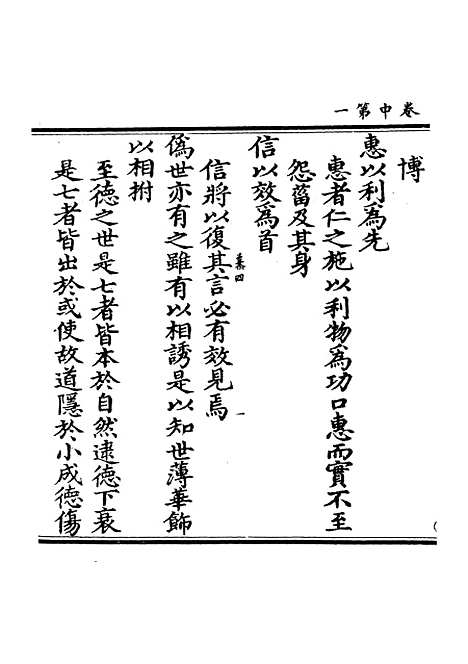 卷中第一
博
惠以利為先
惠者仁之施以利物為功口惠而實不至
怨菑及其身
信以效為首
信將以復其言必有效見焉
偽世亦有之雖有以相誘是以知世薄華飾
以相拊
至德之世是七者皆本於自然逮德下衰
是七者皆出於或使故道隱於小成德傷